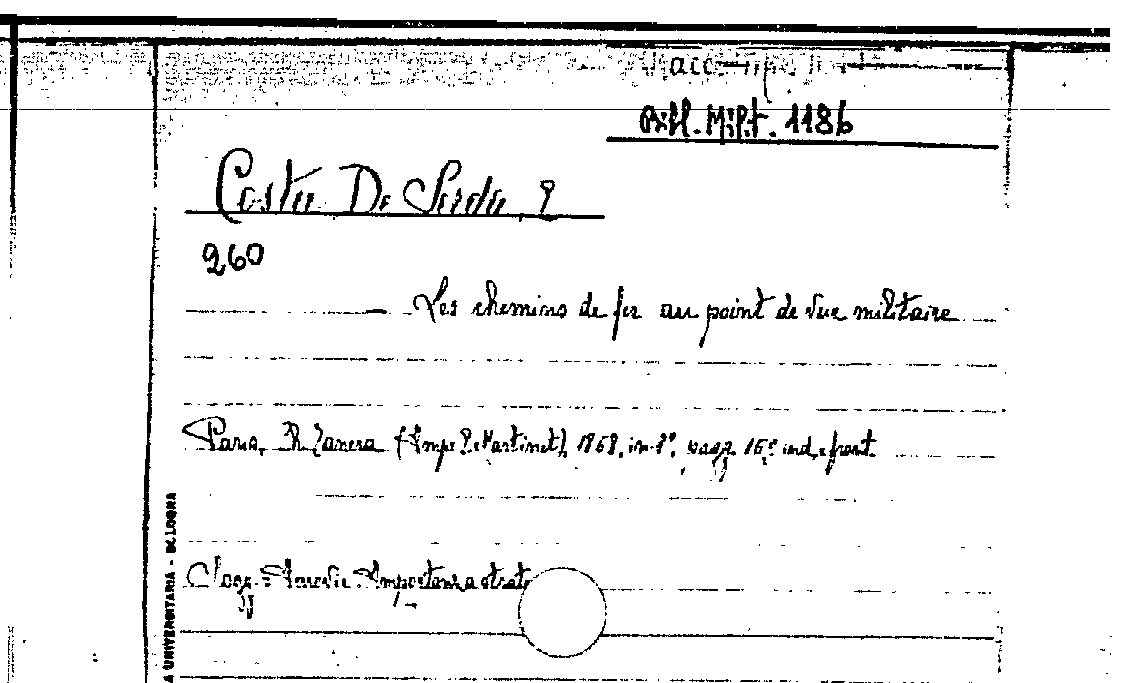 Bibl. Milit. 1186
Costa De Serda, E
260
Les chemins de fer au point de vue militaire
Paris, (Imp. E. Martinet), 1868, in-8°, pagg. 16° front.
Ferrovie Importanza strate
A UNIVERSITARIA - BOLOGNA